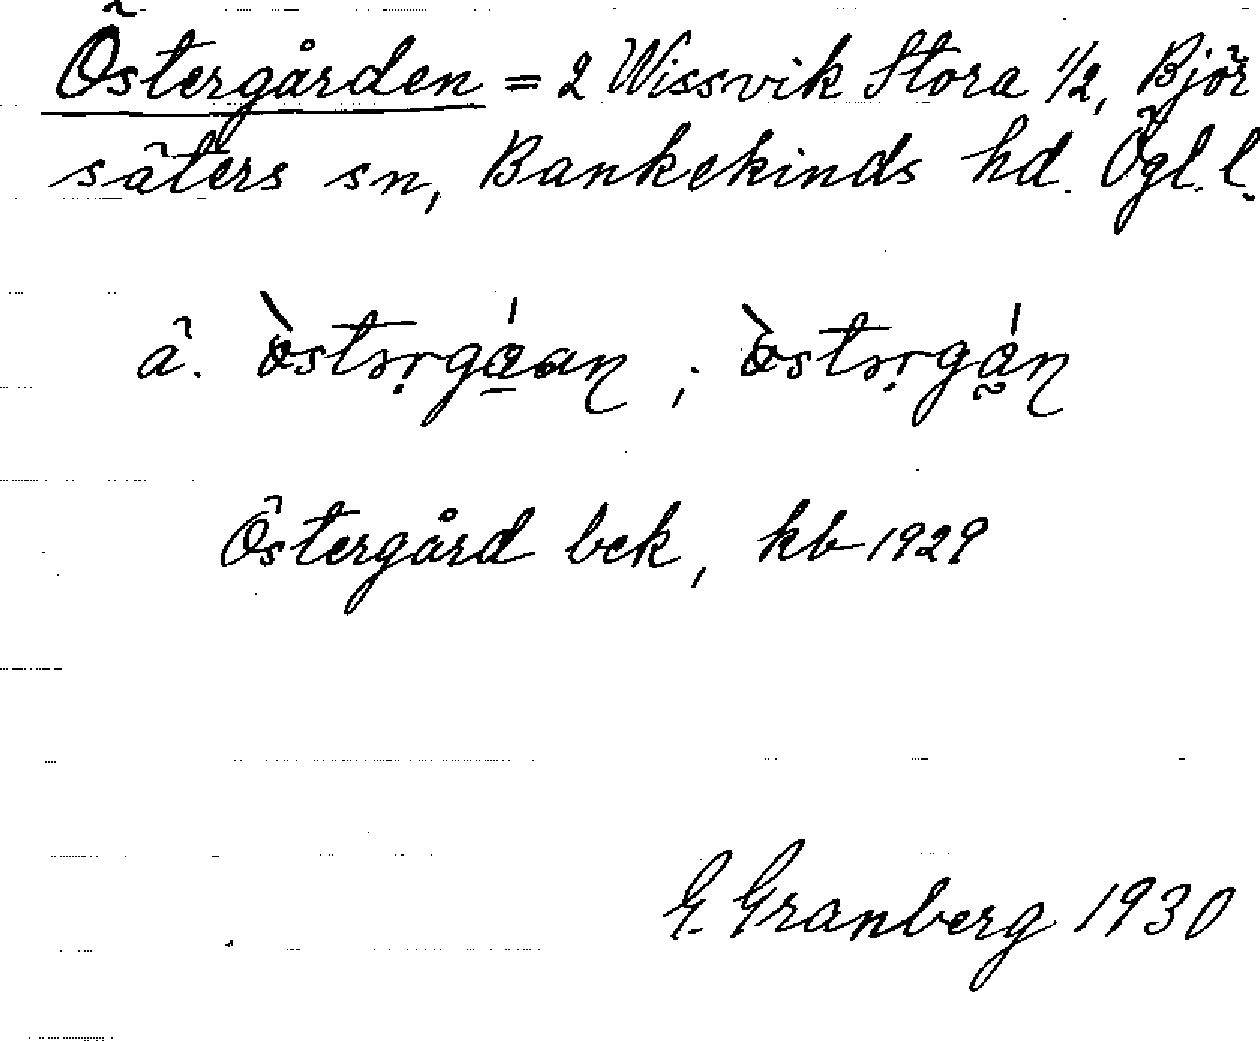 Östergården = 2 Wissvik Stora 1/2, Björ
säters sn, Bankekinds hd. Ögl. l.
ä.
Östergård bek, kb 1929
G. Granberg 1930